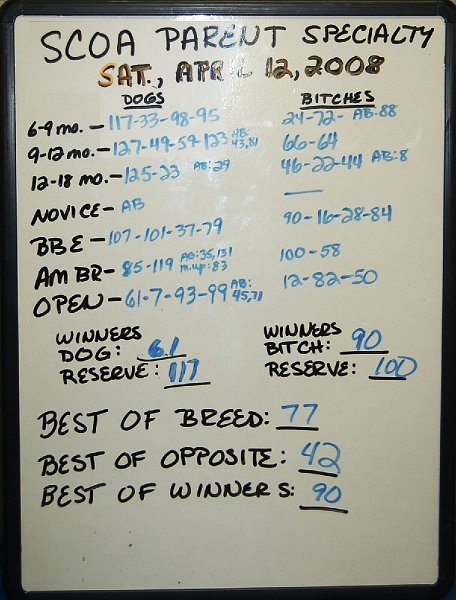 SCOA PARENT SPECIALTY
SAT., APRIL 12, 2008
DOGS BITCHES
6-9 mo. - 117-33-98-95 24-72- AB:88
9-12 mo. - 127-49-59-123 AB: 43,81 66-64
12-18 mo. - 125-23 AB:29 46-22-44 AB:8
NOVICE - AB —
BBE - 107-101-37-79 90-16-28-84
AM BR - 85-119 AB:35,131 m.up:83 100-58
OPEN - 61-7-93-99 AB: 45,71 12-82-50
WINNERS DOG: 61 WINNERS BITCH: 90
RESERVE: 117 RESERVE: 100
BEST OF BREED: 77
BEST OF OPPOSITE: 42
BEST OF WINNERS: 90